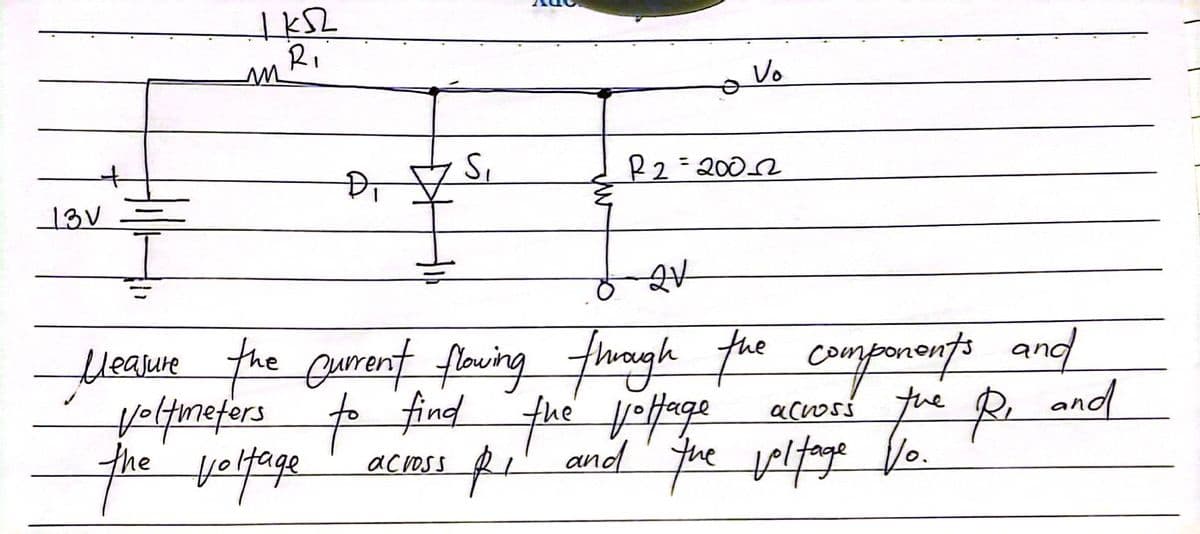 1 kΩ
R1
Vo
+
D1
S1
R2 = 200Ω
13V
-2V
Measure the current flowing through the components and
voltmeters to find the voltage across the R1 and
the voltage across R1 and the voltage Vo.